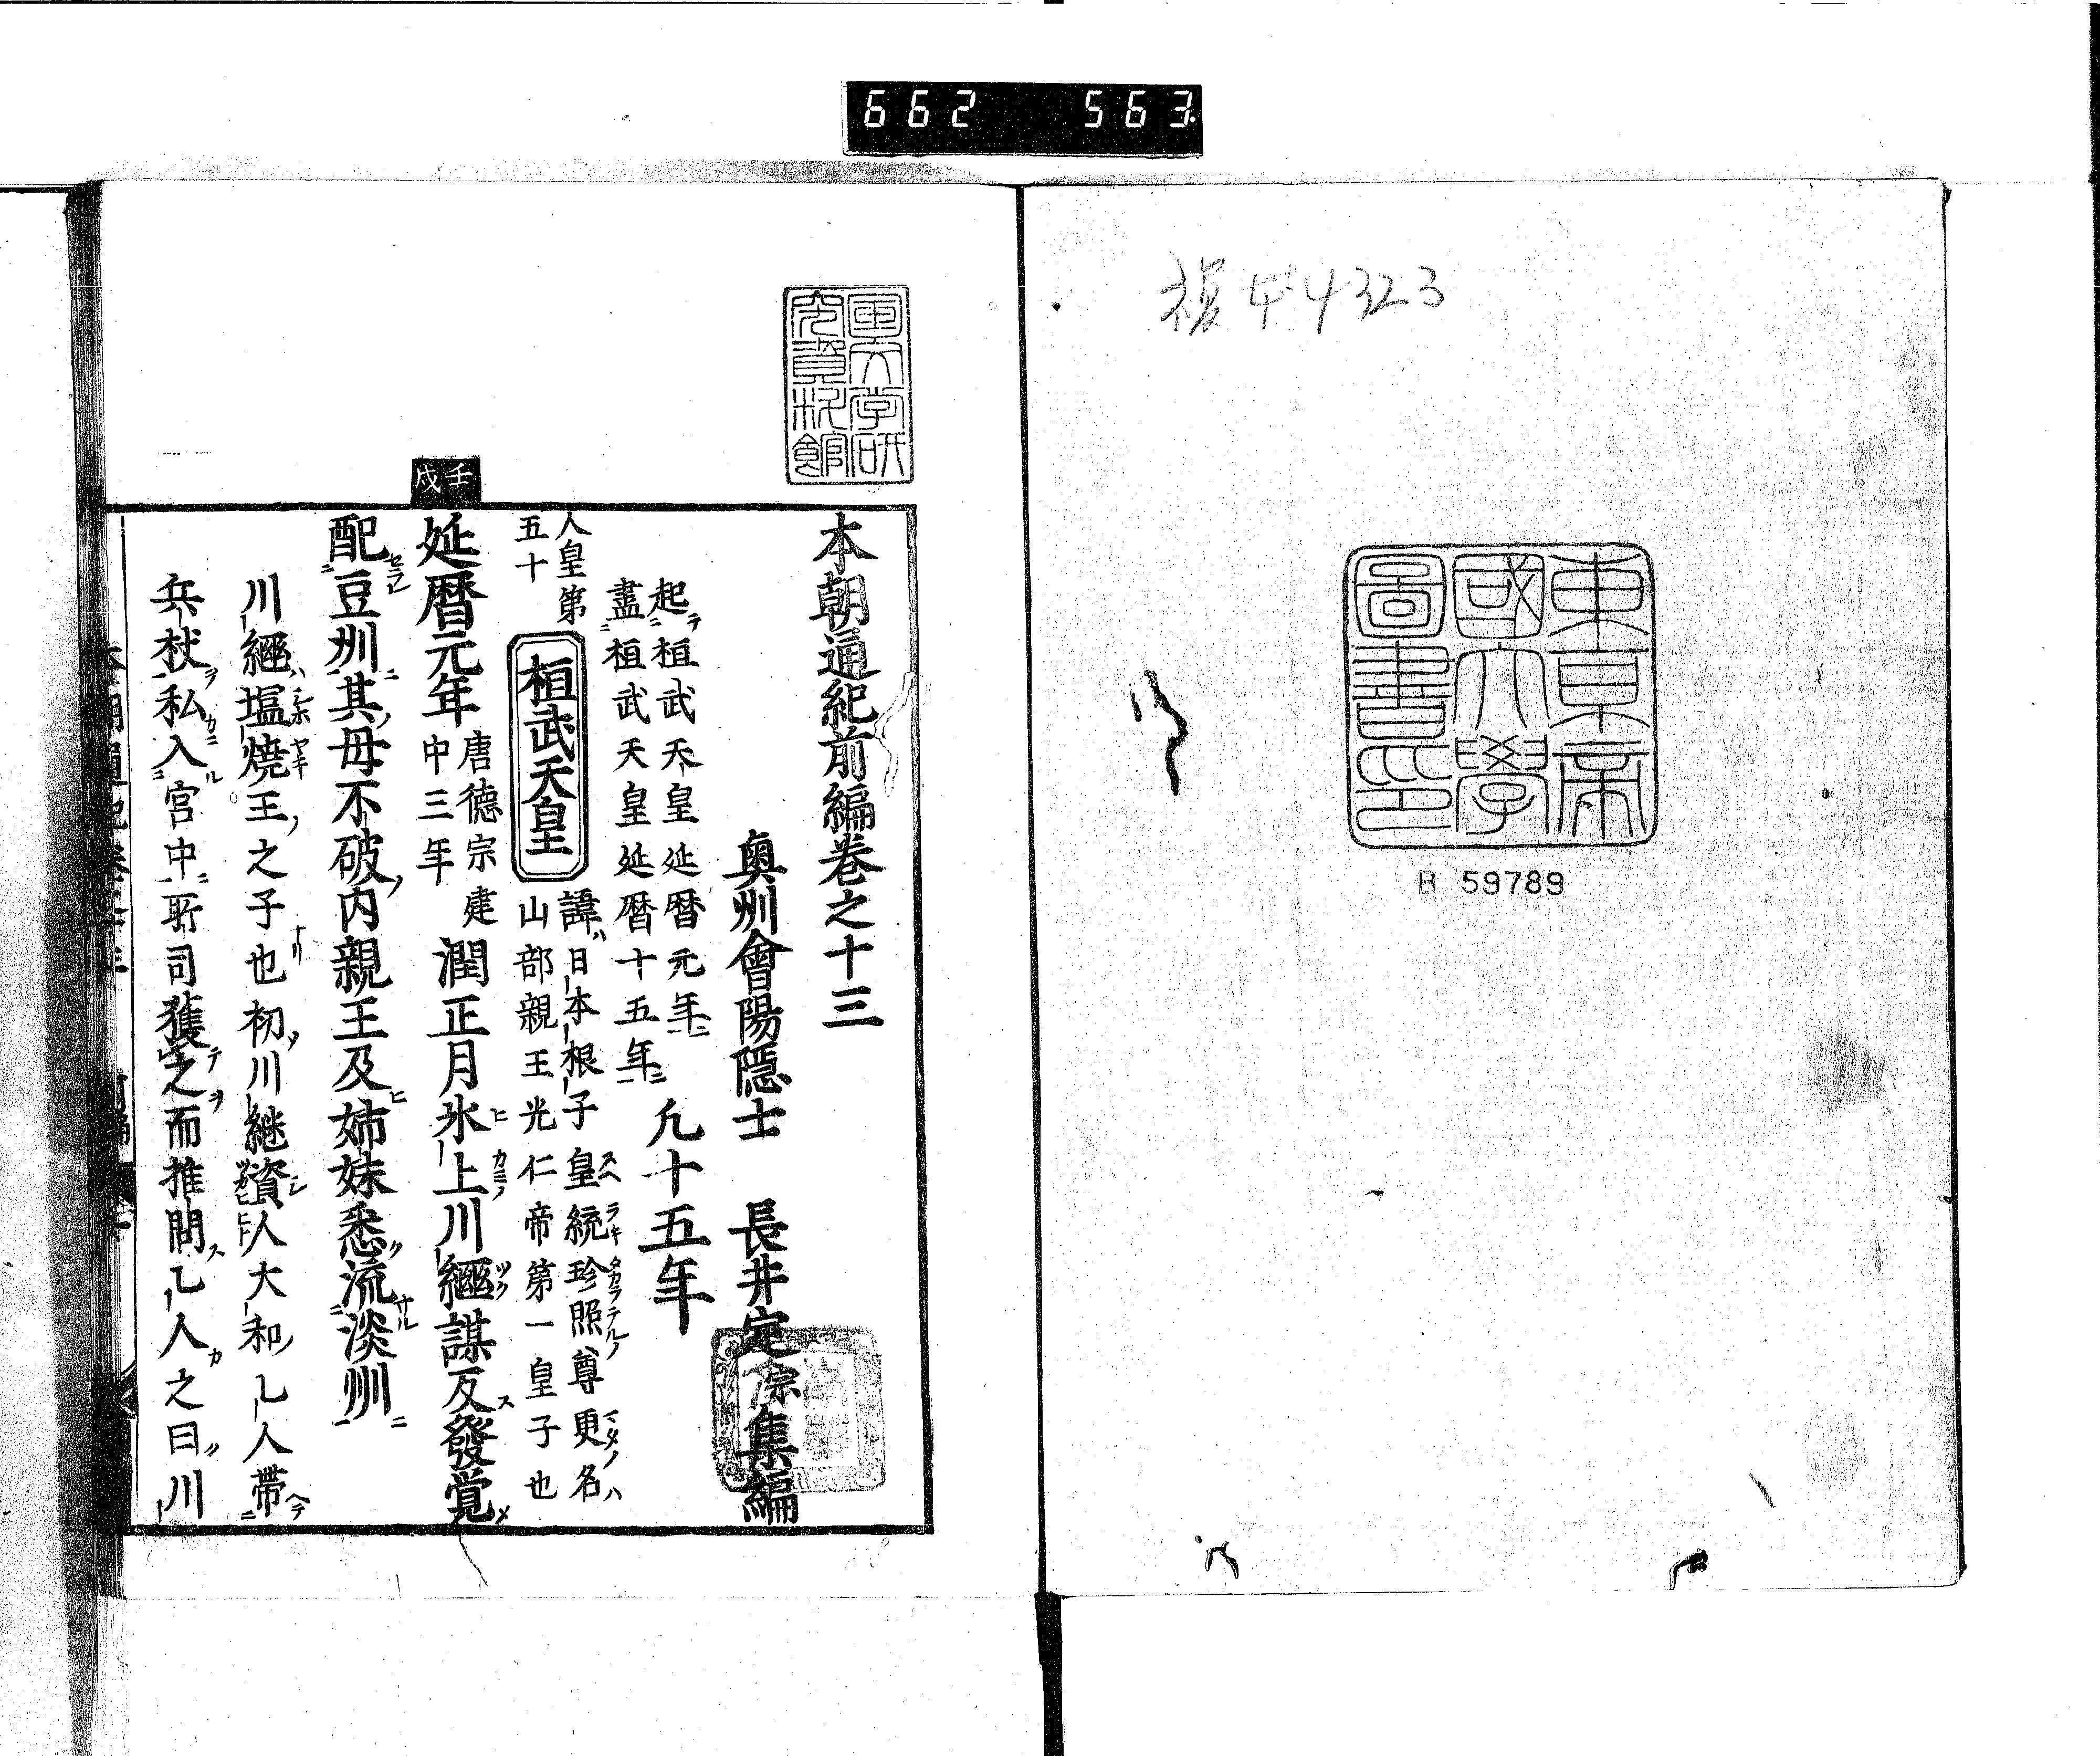 662 563
複本4323
東京帝
國大學
圖書印
R 59789
本朝通紀前編巻之十三
奥州會陽隠士 長井定宗集編
起桓武天皇延暦元年
盡桓武天皇延暦十五年
凢十五年
人皇第
五十
桓武天皇
諱日本根子皇統珍照尊更名
山部親王光仁帝第一皇子也
壬戌
延暦元年
唐德宗建
中三年
潤正月氷上川繼謀反發覚
配豆州其母不破内親王及姉妹悉流淡州
川繼塩燒王之子也初川継資人大和乙人帶
兵杖私入宮中所司獲之而推問乙人之曰川